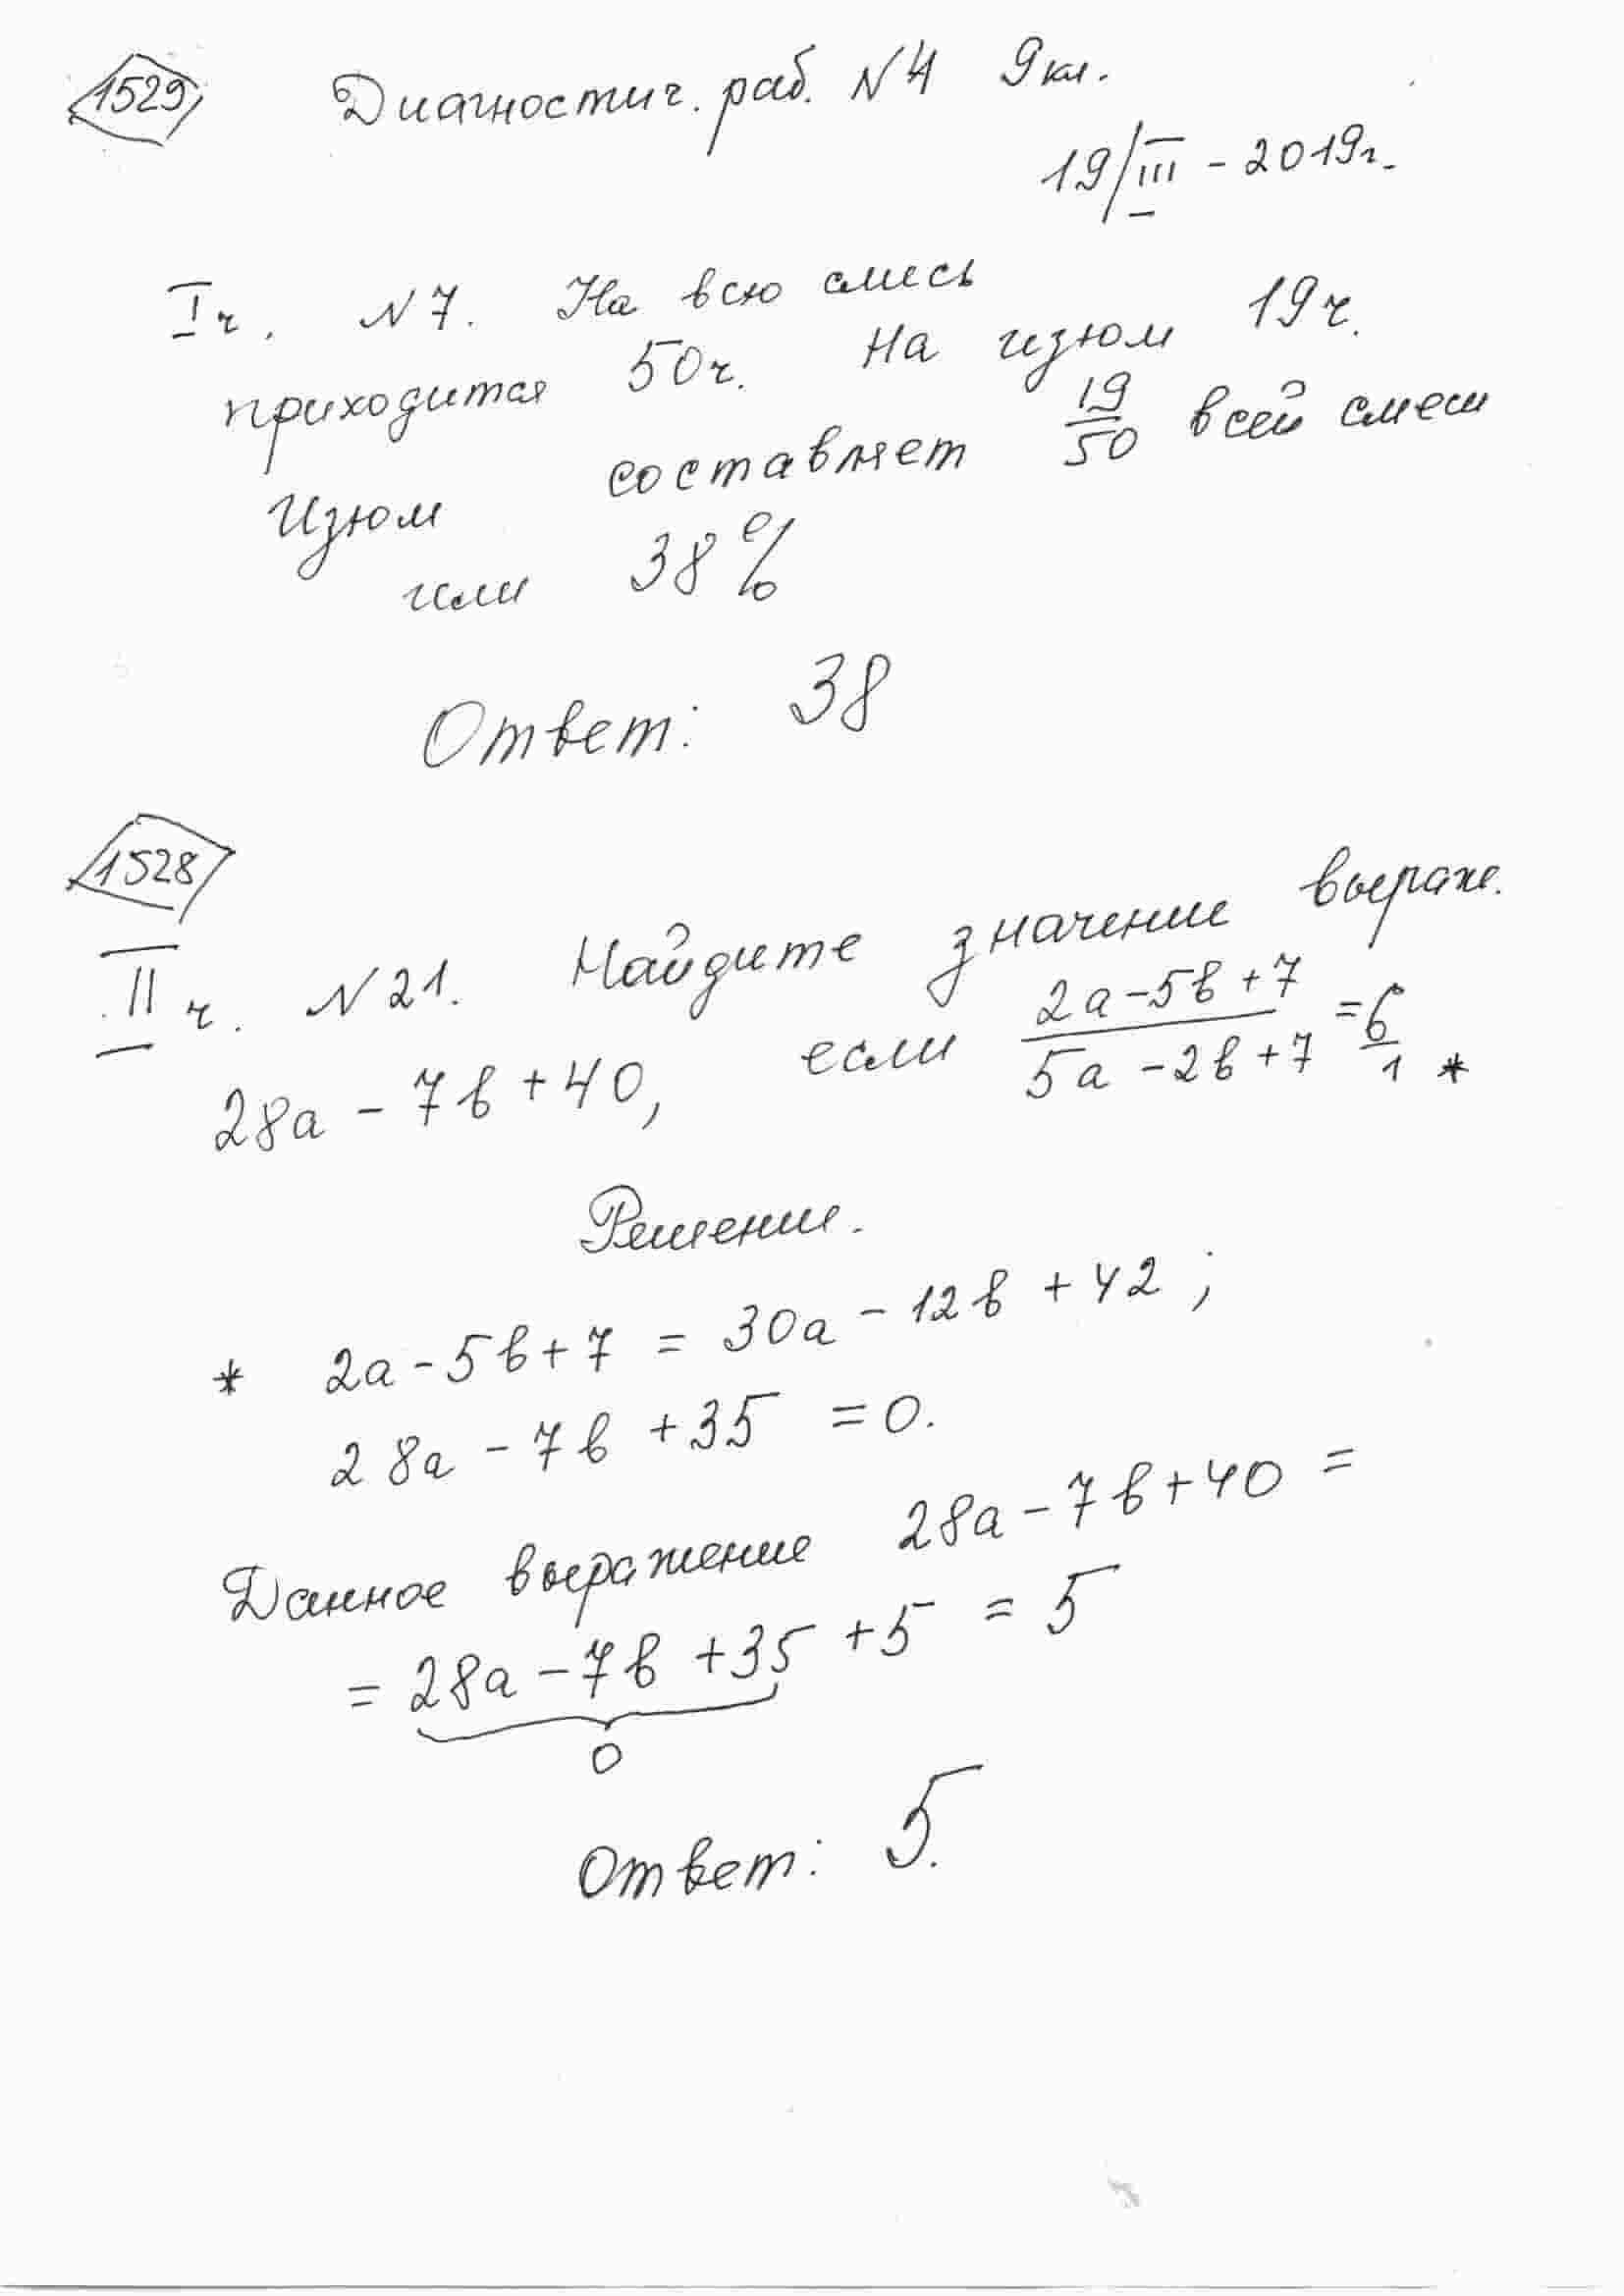 1529 Диагностич. раб. №4 9 кл.
19/III - 2019г.
I ч. №7. На всю смесь
приходится 50ч. На изюм 19ч.
Изюм составляет 19/50 всей смеси
или 38%
Ответ: 38
1528
II ч. №21. Найдите значение выраж.
28a - 7b + 40, если (2a - 5b + 7)/(5a - 2b + 7) = 6/1 *
Решение.
* 2a - 5b + 7 = 30a - 12b + 42;
28a - 7b + 35 = 0.
Данное выражение 28a - 7b + 40 =
= 28a - 7b + 35 + 5 = 5
0
Ответ: 5.